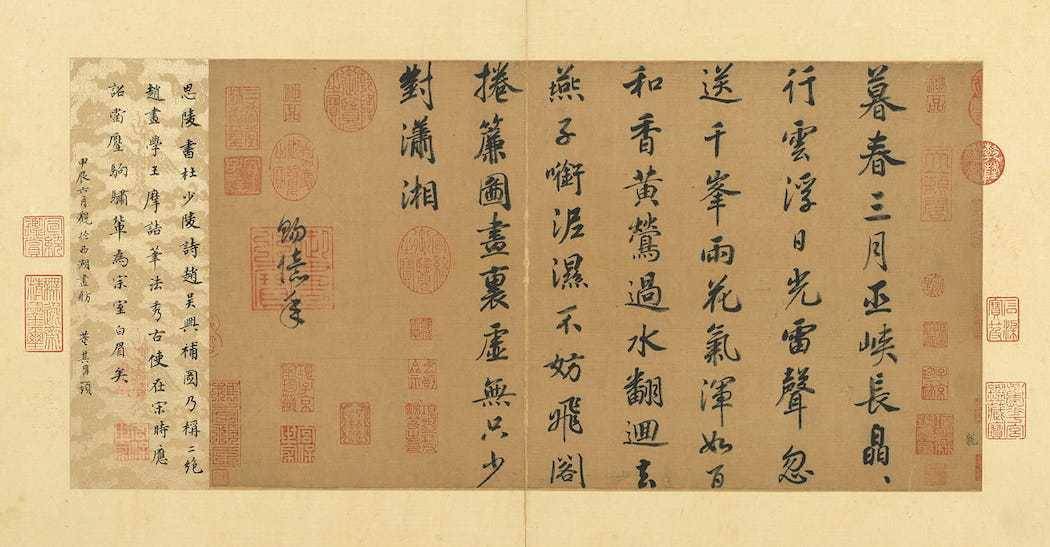 暮春三月巫峽長晶、
行雲浮日光雷聲忽
送千峯雨花氣渾如百
和香黃鶯過水翻迴去
燕子銜泥濕不妨飛閣
捲簾圖畫裏虛無只少
對瀟湘
賜億年
思陵書杜少陵詩趙吳興補圖乃稱二絕
趙畫學王摩詰筆法秀古使在宋時應
詔當壓駒驌輩為宗室白眉矣
甲辰六月觀於西湖畫舫 董其昌題